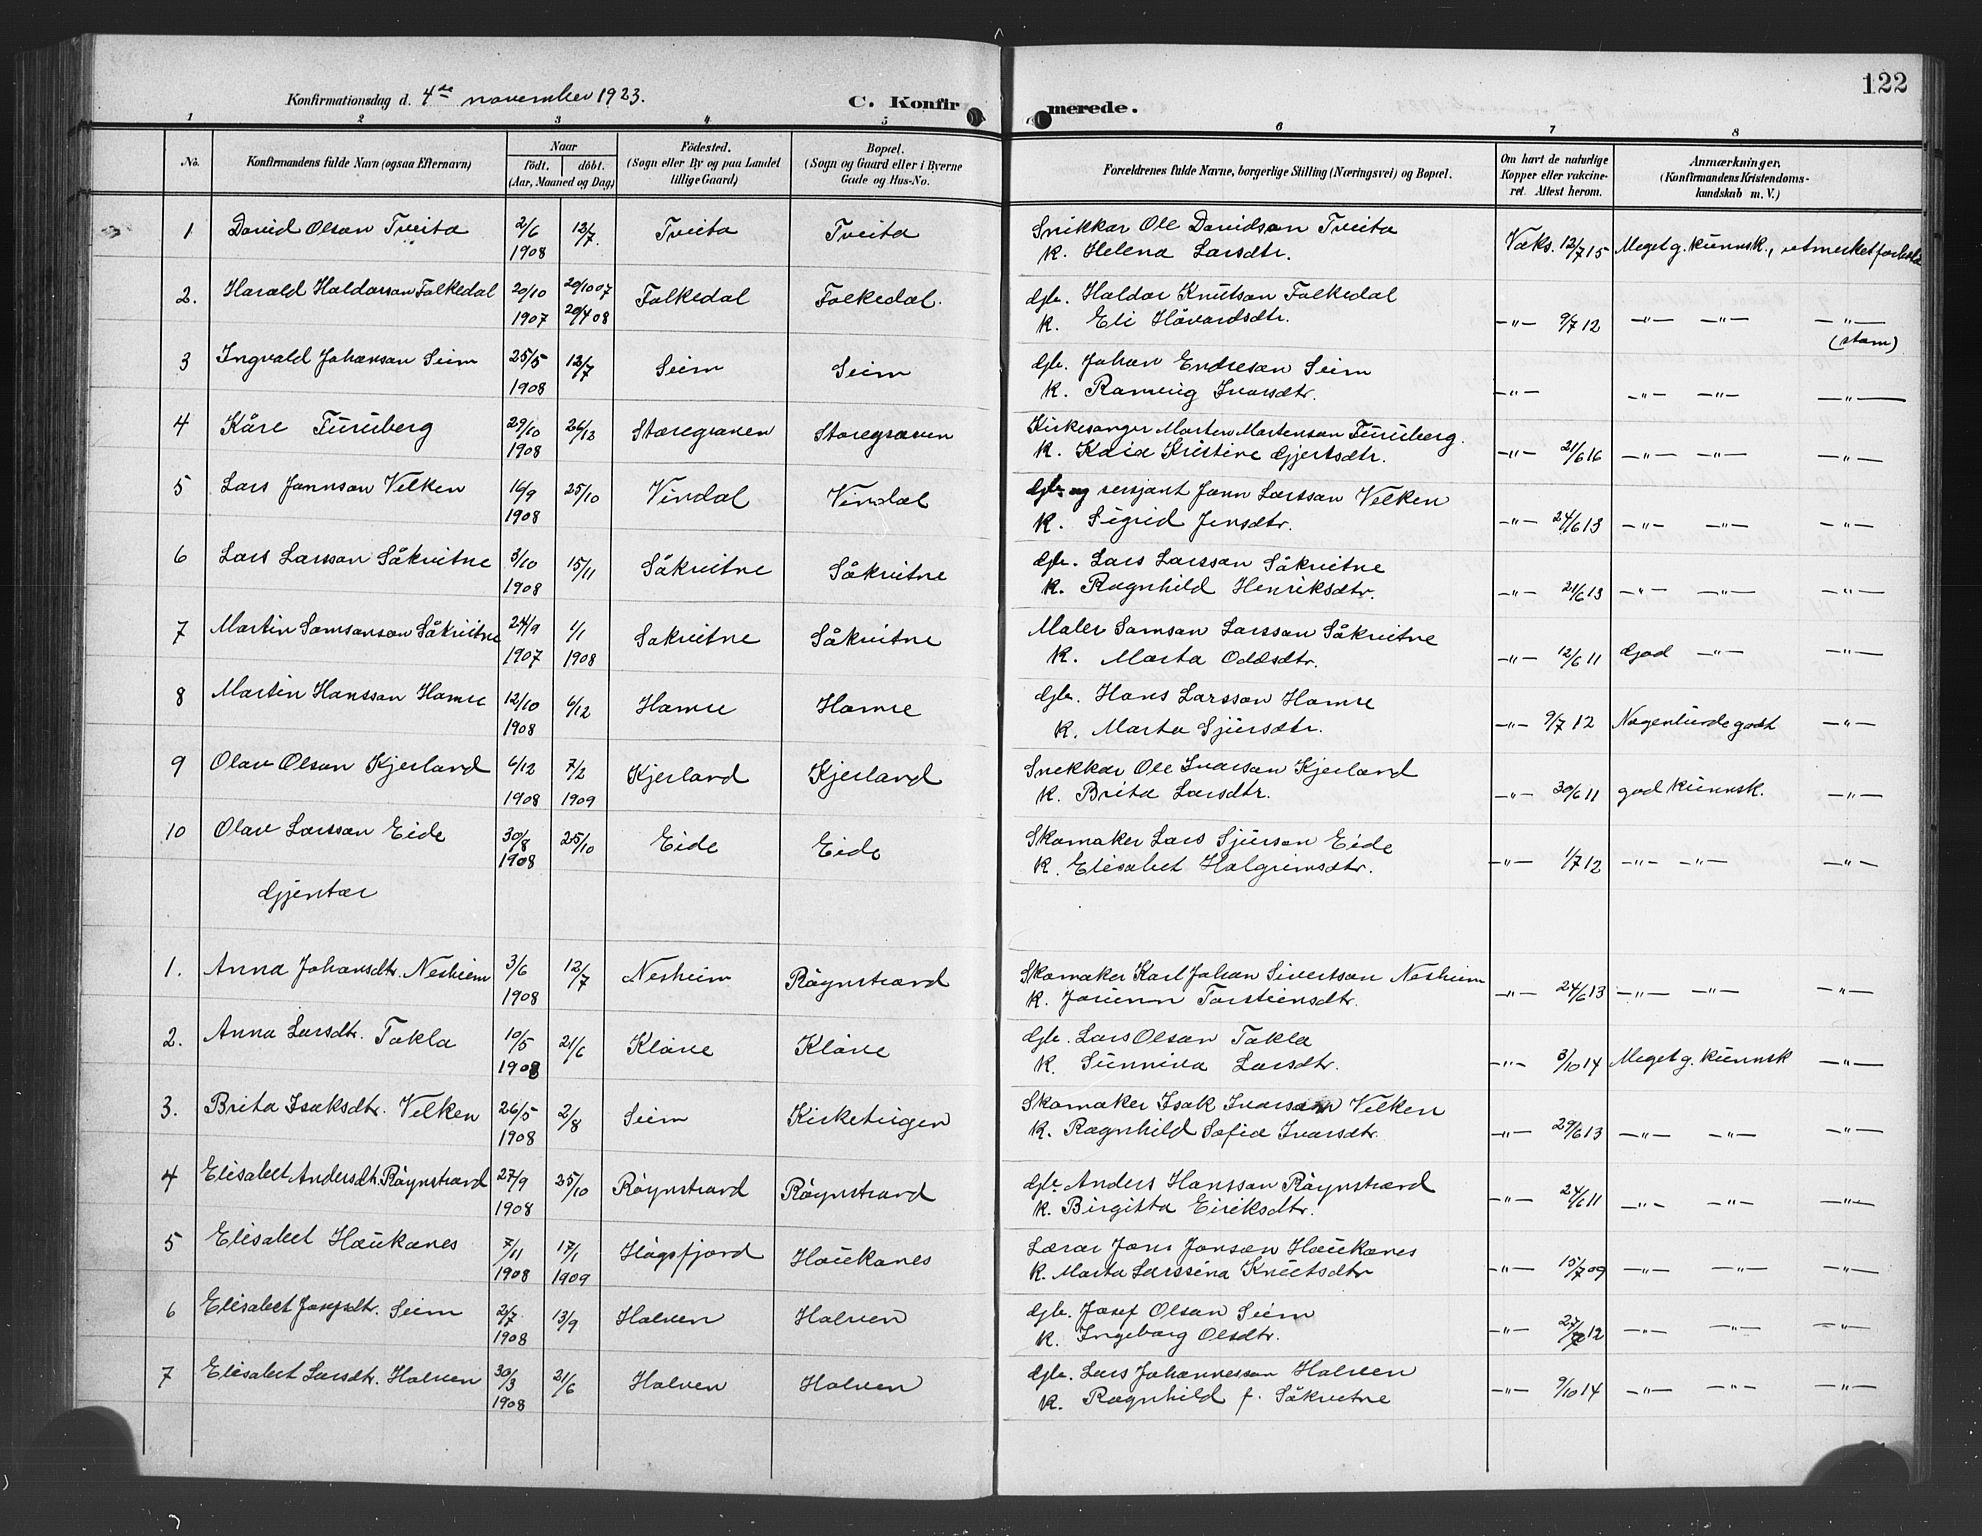 122
Konfirmationsdag d. 4de november 1923.
C. Konfirmerede.
1 2 3 4 5 6 7 8
No.
Konfirmandens fulde Navn (ogsaa Efternavn)
Naar
født. døbt.
(Aar, Maaned og Dag)
Fødested.
(Sogn eller By og paa Landet
tillige Gaard)
Bopæl.
(Sogn og Gaard eller i Byerne
Gade og Hus-No.
Forældrenes fulde Navne, borgerlige Stilling (Næringsvei) og Bopæl.
Om havt de naturlige
Kopper eller vakcine-
ret. Attest herom.
Anmærkninger,
(Konfirmandens Kristendoms-
kundskab m. V.)
1 David Olson Tveita 2/6 1908 12/7. Tveita Tveita Snikkar Ole Davidson Tveita Vaks. 12/7 15 Meget g. kunnsk., utmerket forhold
k. Helena Larsdtr.
2. Harald Haldorson Folkedal 20/10 1907 20/10 07 20/4 08 Folkedal Folkedal. Gbr. Haldor Knutson Folkedal
k. Eli Håvardsdtr. -"- 9/7 12 -"- -"- -"-
(stam)
3 Ingvald Johanson Seim 25/5 1908 12/7 Seim Seim Gbr. Johan Endreson Seim
k. Ranveig Ivarsdtr. -"- -"- -"- -"-
4 Kåre Furuberg 29/10 1908 26/12 Storegraven Storegraven Kirkesanger Morten Mortenson Furuberg.
k. Kaia Kristine Gjertsdtr. -"- 21/6 16 -"- -"- -"-
5 Lars Jonnson Velken 16/9 1908 25/10 Vindal Vindal Gbr. og sersjant Jonn Larsson Velken
k. Sigrid Jensdtr. -"- 24/6 13 -"- -"- -"-
6 Lars Larsson Såkvitne 3/10 1908 15/11 Såkvitne Såkvitne Gbr. Lars Larsson Såkvitne
k. Ragnhild Henriksdtr. -"- 21/6 13 -"- -"- -"-
7 Martin Samsonson Såkvitne 24/9 1907 4/1 1908 Sakvitne Såkvitne Maler Samson Larsson Såkvitne
k. Marta Oddsdtr. -"- 12/6 11 God -"- -"-
8 Martin Hansson Hamre 12/10 1908 6/12 Hamre Hamre Gbr. Hans Larsson Hamre
k. Marta Sjursdtr. -"- 9/7 12 Nogenlunde godt -"-
9 Olav Olson Kjerland 6/12 1908 7/2 1909 Kjerland Kjerland Snekkar Ole Ivarson Kjerland
k. Brita Larsdtr. -"- 30/6 11 god kunnsk. -"-
10 Olav Larsson Eide 30/8 1908 25/10 Eide Eide Skomaker Lars Sjurson Eide
k. Elisabet Halgrimsdtr. -"- 1/7 12 -"- -"- -"-
Gjentor
1. Anna Johansdtr. Nesheim 3/6 1908 12/7 Nesheim Røynstrand Skomaker Karl Johan Sivertson Nesheim
k. Jorunn Torsteinsdtr. -"- 24/6 13 -"- -"- -"-
2. Anna Larsdtr. Takla 10/5 1908 21/6 Kløve Kløve Gbr. Lars Olson Takla
k. Sunniva Larsdtr. -"- 3/10 14 Meget g. kunnsk -"-
3. Brita Isaksdtr. Velken 26/5 1908 2/8 Seim Kirketeigen Skomaker Isak Ivarson Velken
k. Ragnhild Sofia Ivarsdtr. -"- 29/6 13 -"- -"- -"-
4 Elisabet Andersdt. Røynstrand 27/9 1908 25/10 Røynstrand Røynstrand Gbr. Anders Hansson Røynstrand
k. Birgitta Eiriksdtr. -"- 24/6 11 -"- -"- -"-
5 Elisabet Haukanes 7/11 1908 17/1 1909 Høgsfjord Haukanes Lærar Jons Jonson Haukanes
k. Marta Larssina Knutsdtr -"- 15/7 09 -"- -"- -"-
6 Elisabet Josefsdtr. Seim 2/7 1908 13/9 Halven Halven Gbr. Josef Olson Seim
k. Ingeborg Olsdtr. -"- 12 -"- -"- -"-
7 Elisabet Larsdtr. Halven 30/3 1908 21/6 Halven Halven Gbr. Lars Johannesson Halven
k. Ragnhild f. Såkvitne -"- 9/10 14 -"- -"- -"-